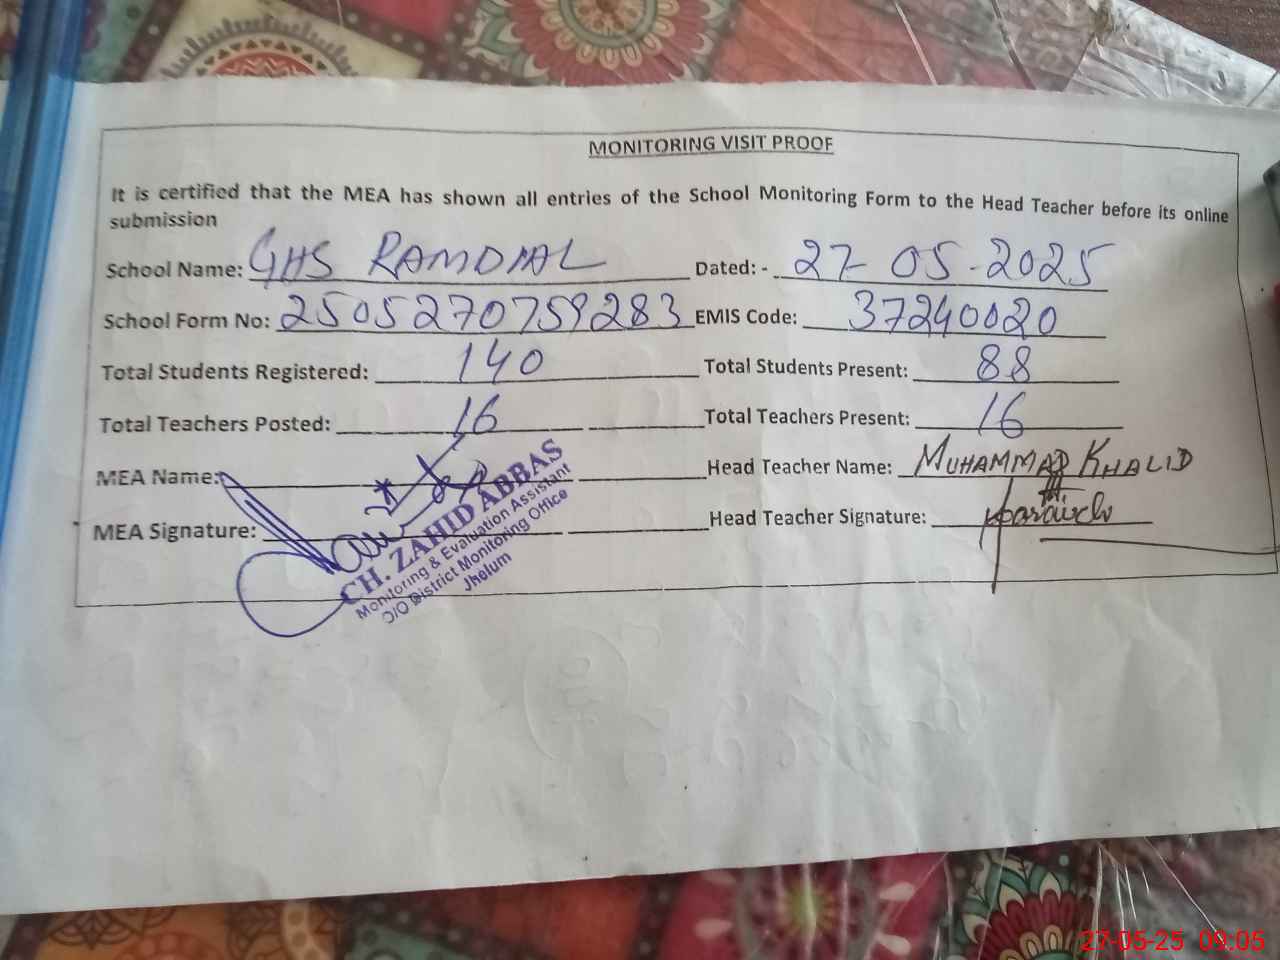 MONITORING VISIT PROOF
It is certified that the MEA has shown all entries of the School Monitoring Form to the Head Teacher before its online
submission
School Name: GHS RAMDIAL Dated: - 27-05-2025
School Form No: 2505270759283 EMIS Code: 37240020
Total Students Registered: 140 Total Students Present: 88
Total Teachers Posted: 16 Total Teachers Present: 16
MEA Name: Head Teacher Name: MUHAMMAD KHALID
MEA Signature: Head Teacher Signature:
CH. ZAHID ABBAS
Monitoring & Evaluation Assistant
O/O District Monitoring Office
Jhelum
27-05-25 09:05